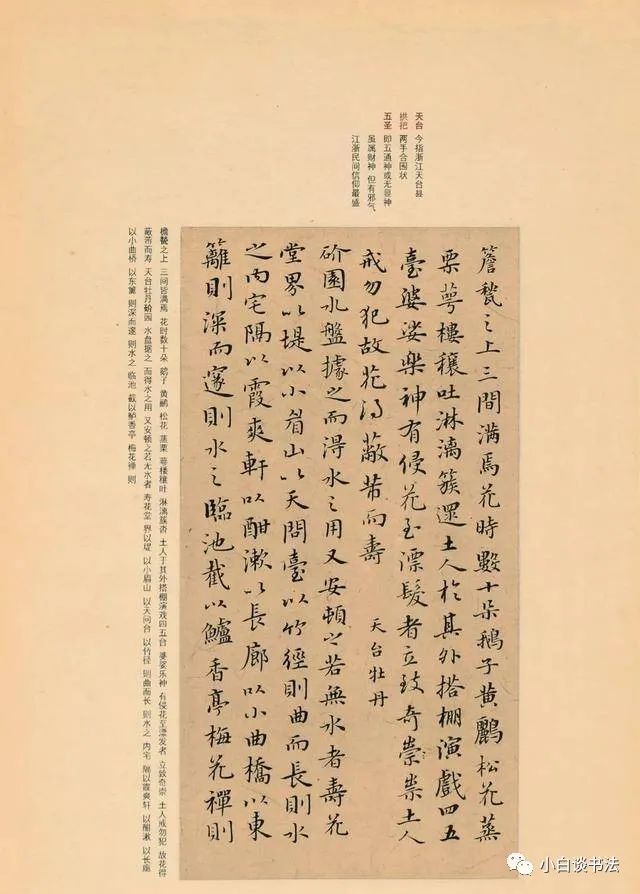 天台 今指浙江天台县
拱把 两手合围状
五圣 即五通神或无显神
虽属财神 但有邪气
江浙民间信仰最盛
簷甃之上三間滿焉花時數十朵鵝子黃鸝松花蒸
栗萼樓穰吐淋漓簇還土人於其外搭棚演戲四五
臺婆娑樂神有侵花至漂髮者立致奇祟祟土人
戒勿犯故花得蔽芾而壽 天台牡丹
砎園水盤據之而得水之用又安頓之若無水者壽花
堂界以堤以小眉山以天問臺以竹徑則曲而長則水
之内宅隔以霞爽軒以酣漱以長廊以小曲橋以東
籬則深而邃則水之臨池截以鱸香亭梅花禪則
檐甃之上 三间皆满焉 花时数十朵 鹅子 黄鹂 松花 蒸栗 萼楼穰吐 淋漓簇沓 土人于其外搭棚演戏四五台 婆娑乐神 有侵花至漂发者 立致奇祟 土人戒勿犯 故花得
蔽芾而寿 天台牡丹砎园 水盘据之 而得水之用 又安顿之若无水者 寿花堂 界以堤 以小眉山 以天问台 以竹径 则曲而长 则水之 内宅 隔以霞爽轩 以酣漱 以长廊
以小曲桥 以东篱 则深而邃 则水之 临池 截以鲈香亭 梅花禅 则
小白谈书法